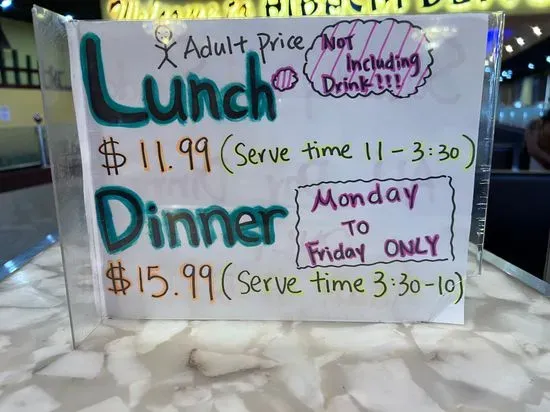 Welcome to HIBACHI
Adult Price
Not
Including
Drink!!!
Lunch
$ 11.99 (Serve time 11 - 3:30)
Dinner
Monday
TO
Friday ONLY
$ 15.99 (Serve time 3:30-10)